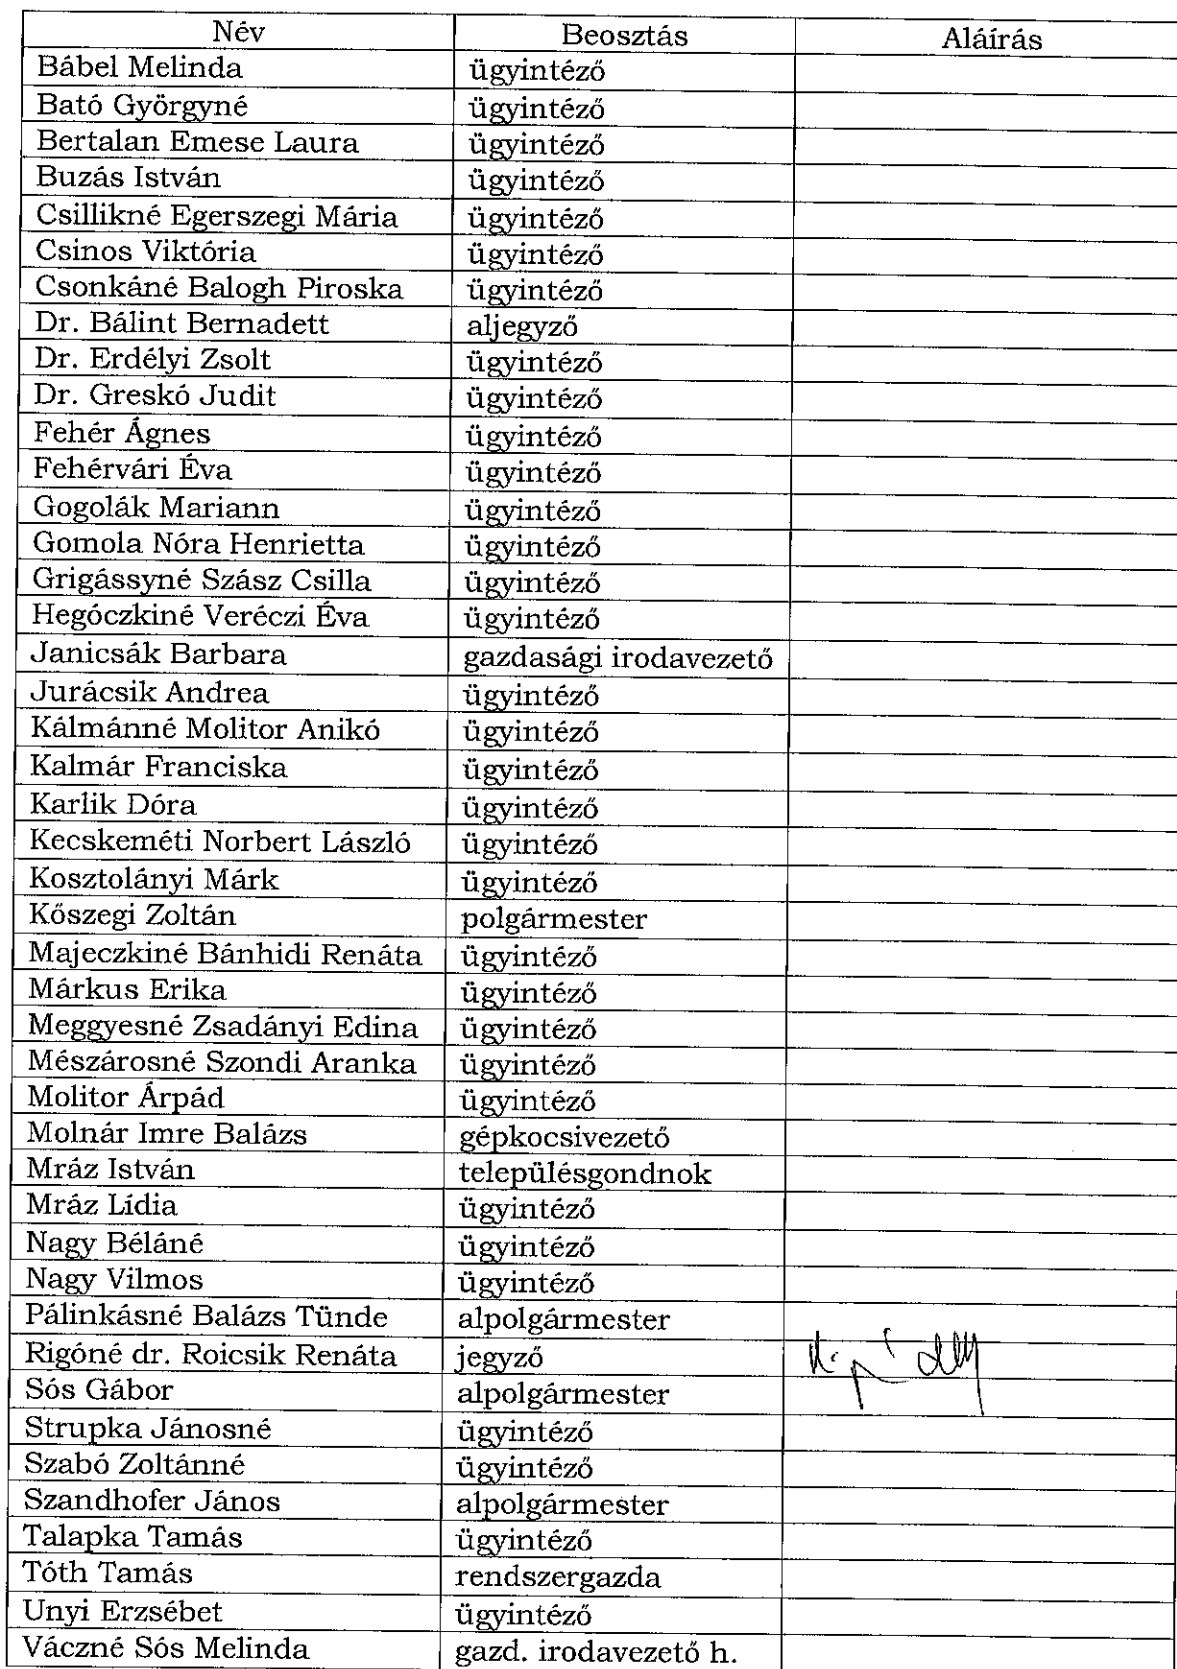 Név Beosztás Aláírás
Bábel Melinda ügyintéző
Bató Györgyné ügyintéző
Bertalan Emese Laura ügyintéző
Buzás István ügyintéző
Csillikné Egerszegi Mária ügyintéző
Csinos Viktória ügyintéző
Csonkáné Balogh Piroska ügyintéző
Dr. Bálint Bernadett aljegyző
Dr. Erdélyi Zsolt ügyintéző
Dr. Greskó Judit ügyintéző
Fehér Ágnes ügyintéző
Fehérvári Éva ügyintéző
Gogolák Mariann ügyintéző
Gomola Nóra Henrietta ügyintéző
Grigássyné Szász Csilla ügyintéző
Hegóczkiné Veréczi Éva ügyintéző
Janicsák Barbara gazdasági irodavezető
Jurácsik Andrea ügyintéző
Kálmánné Molitor Anikó ügyintéző
Kalmár Franciska ügyintéző
Karlik Dóra ügyintéző
Kecskeméti Norbert László ügyintéző
Kosztolányi Márk ügyintéző
Kőszegi Zoltán polgármester
Majeczkiné Bánhidi Renáta ügyintéző
Márkus Erika ügyintéző
Meggyesné Zsadányi Edina ügyintéző
Mészárosné Szondi Aranka ügyintéző
Molitor Árpád ügyintéző
Molnár Imre Balázs gépkocsivezető
Mráz István településgondnok
Mráz Lídia ügyintéző
Nagy Béláné ügyintéző
Nagy Vilmos ügyintéző
Pálinkásné Balázs Tünde alpolgármester
Rigóné dr. Roicsik Renáta jegyző
Sós Gábor alpolgármester
Strupka Jánosné ügyintéző
Szabó Zoltánné ügyintéző
Szandhofer János alpolgármester
Talapka Tamás ügyintéző
Tóth Tamás rendszergazda
Unyi Erzsébet ügyintéző
Váczné Sós Melinda gazd. irodavezető h.